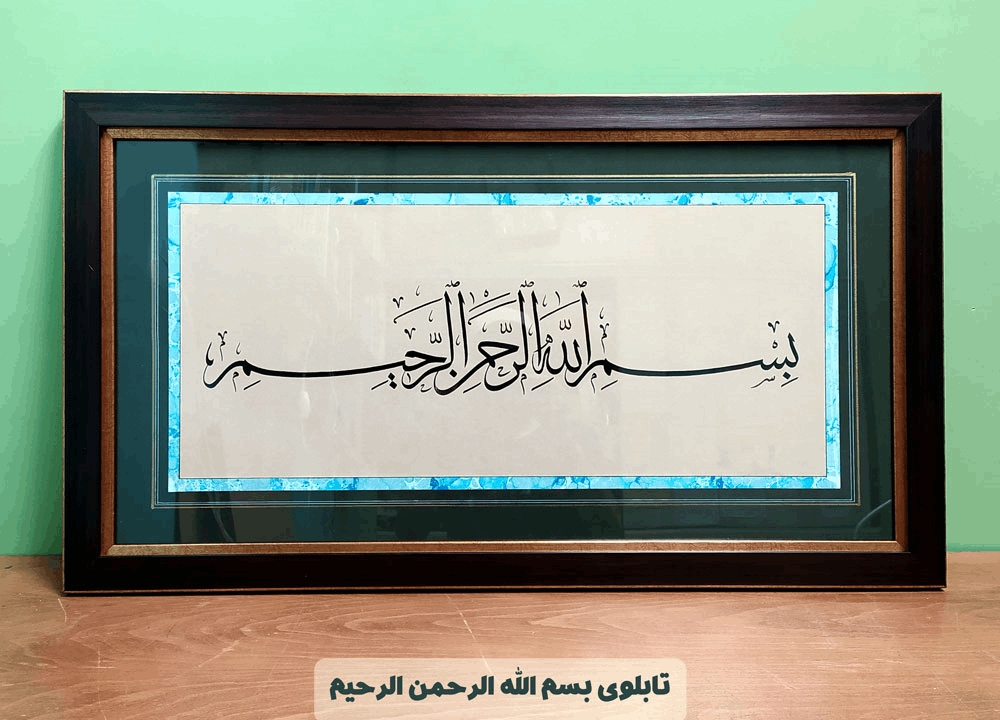 بِسْمِ ٱللَّهِ ٱلرَّحْمَٰنِ ٱلرَّحِيمِ
تابلوی بسم الله الرحمن الرحیم